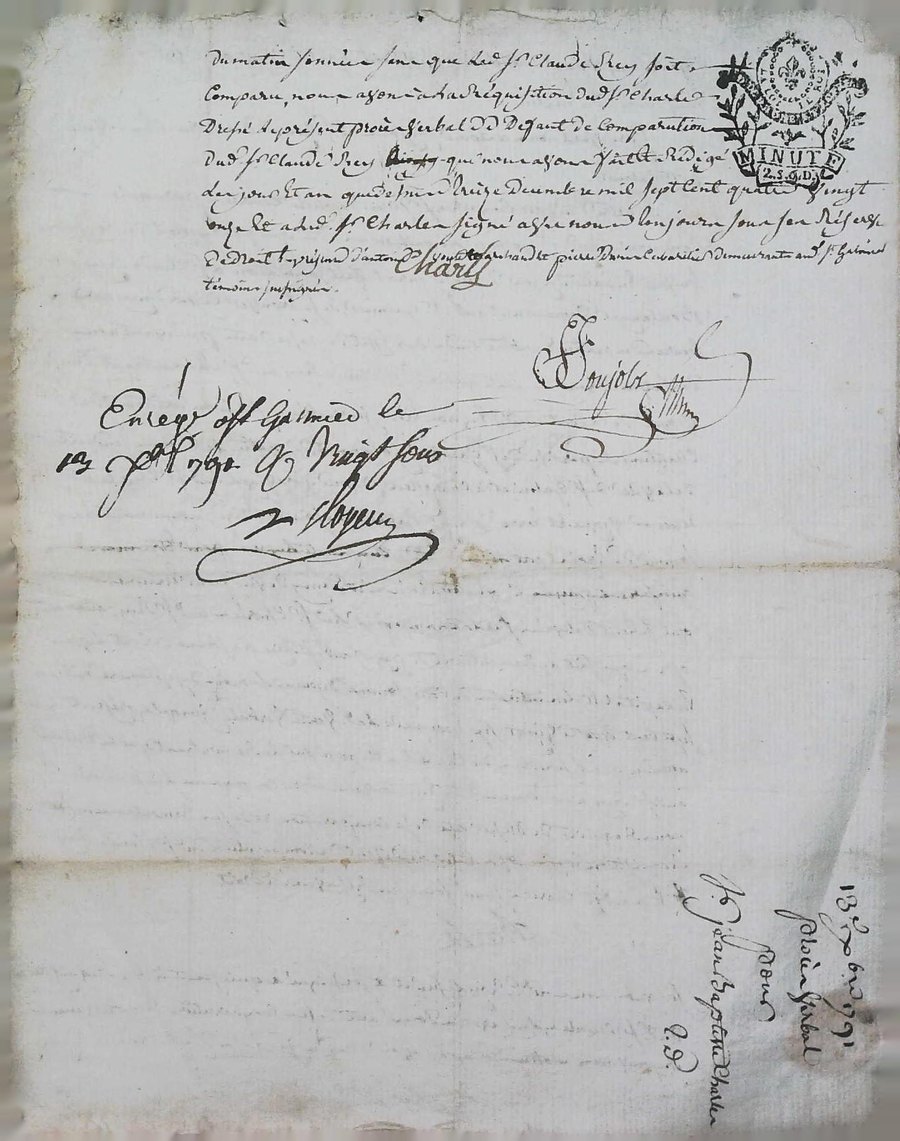 Du matin sonnée sans que led. Sr. Claude Rey soit
Comparu, nous avons à la Réquisition dud. Sr. Charles
Dressé le présent procès Verbal De Defaut de Comparution
dud. Sr. Claude Rey que nous avons fait et Rédigé
les jour Et an que dessus treize Decembre mil sept Cent quatre Vingt
onze Et a led. Sr. Charles signé avec nous toujours sous ses Réserves
De droit présent d'antoine et pierre demeurants aud. St.
témoins
Charles
Enreg. à St. le
13 Xbre 1791 R Vingt sous
LA LOI LE ROI
MINUTE
2.S.9.D.
13e. xbre 1791
procès Verbal
pour
Sr. Jean Baptiste Charles